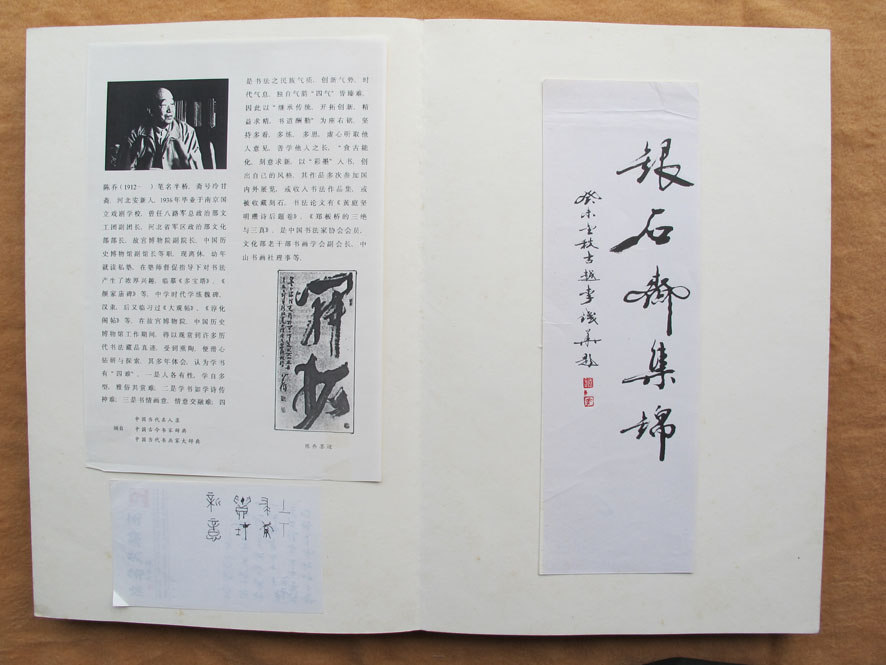 陈乔(1912- )笔名半杨, 斋号待甘
斋. 河北安新人. 1936年毕业于南京国
立戏剧学校, 曾任八路军总政治部文
工团副团长, 河北省军区政治部文化
部部长, 故宫博物院副院长, 中国历
史博物馆副馆长等职. 现离休. 幼年
就读私塾, 在塾师督促指导下对书法
产生了浓厚兴趣, 临摹《多宝塔》、《
颜家庙碑》等, 中学时代学练魏碑、
汉隶, 后又临习过《大观帖》、《淳化
阁帖》等, 在故宫博物院、中国历史
博物馆工作期间, 得以观赏到许多历
代书法藏品真迹, 受到熏陶, 便潜心
钻研与探索, 其多年体会, 认为学书
有"四难", 一是人各有性, 学自多
型, 雅俗共赏难; 二是学书如学诗传
神难; 三是书情画意, 情意交融难; 四
是书法之民族气质, 创新气势, 时
代气息, 独自气韵"四气"皆臻难.
因此以"继承传统, 开拓创新, 精
益求精, 书道酬勤"为座右铭, 坚
持多看, 多练, 多思, 虚心听取他
人意见, 善学他人之长, "食古能
化, 刻意求新, 以"彩墨"入书, 创
出自己的风格, 其作品多次参加国
内外展览, 或收入书法作品集, 或
被收藏刻石. 书法论文有《黄庭坚
明瓒诗后题卷》、《郑板桥的三绝
与三真》. 是中国书法家协会会员,
文化部老干部书画学会副会长, 中
山书画社理事等.
陈乔墨迹
摘自
中国当代名人录
中国古今书家辞典
中国当代书法家大辞典
银石斋集锦
癸未金秋古越李铎华题